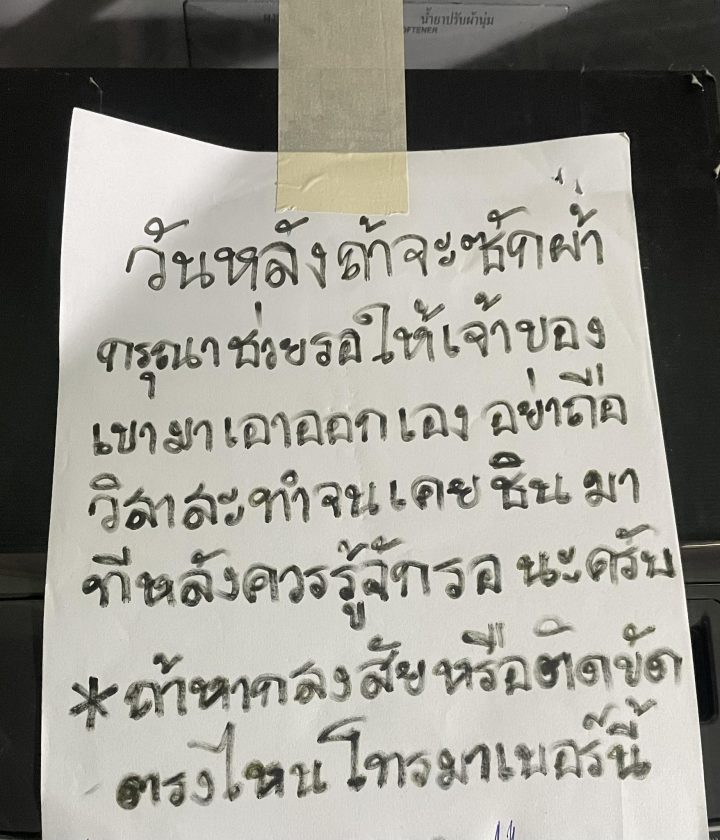 น้ำยาปรับผ้านุ่ม
OFTENER
วันหลังถ้าจะซักผ้า
กรุณาช่วยรอให้เจ้าของ
เขามาเอาออกเอง อย่าถือ
วิสาสะทำจนเคยชิน มา
ทีหลังควรรู้จักรอ นะครับ
*ถ้าหากสงสัยหรือติดขัด
ตรงไหน โทรมาเบอร์นี้